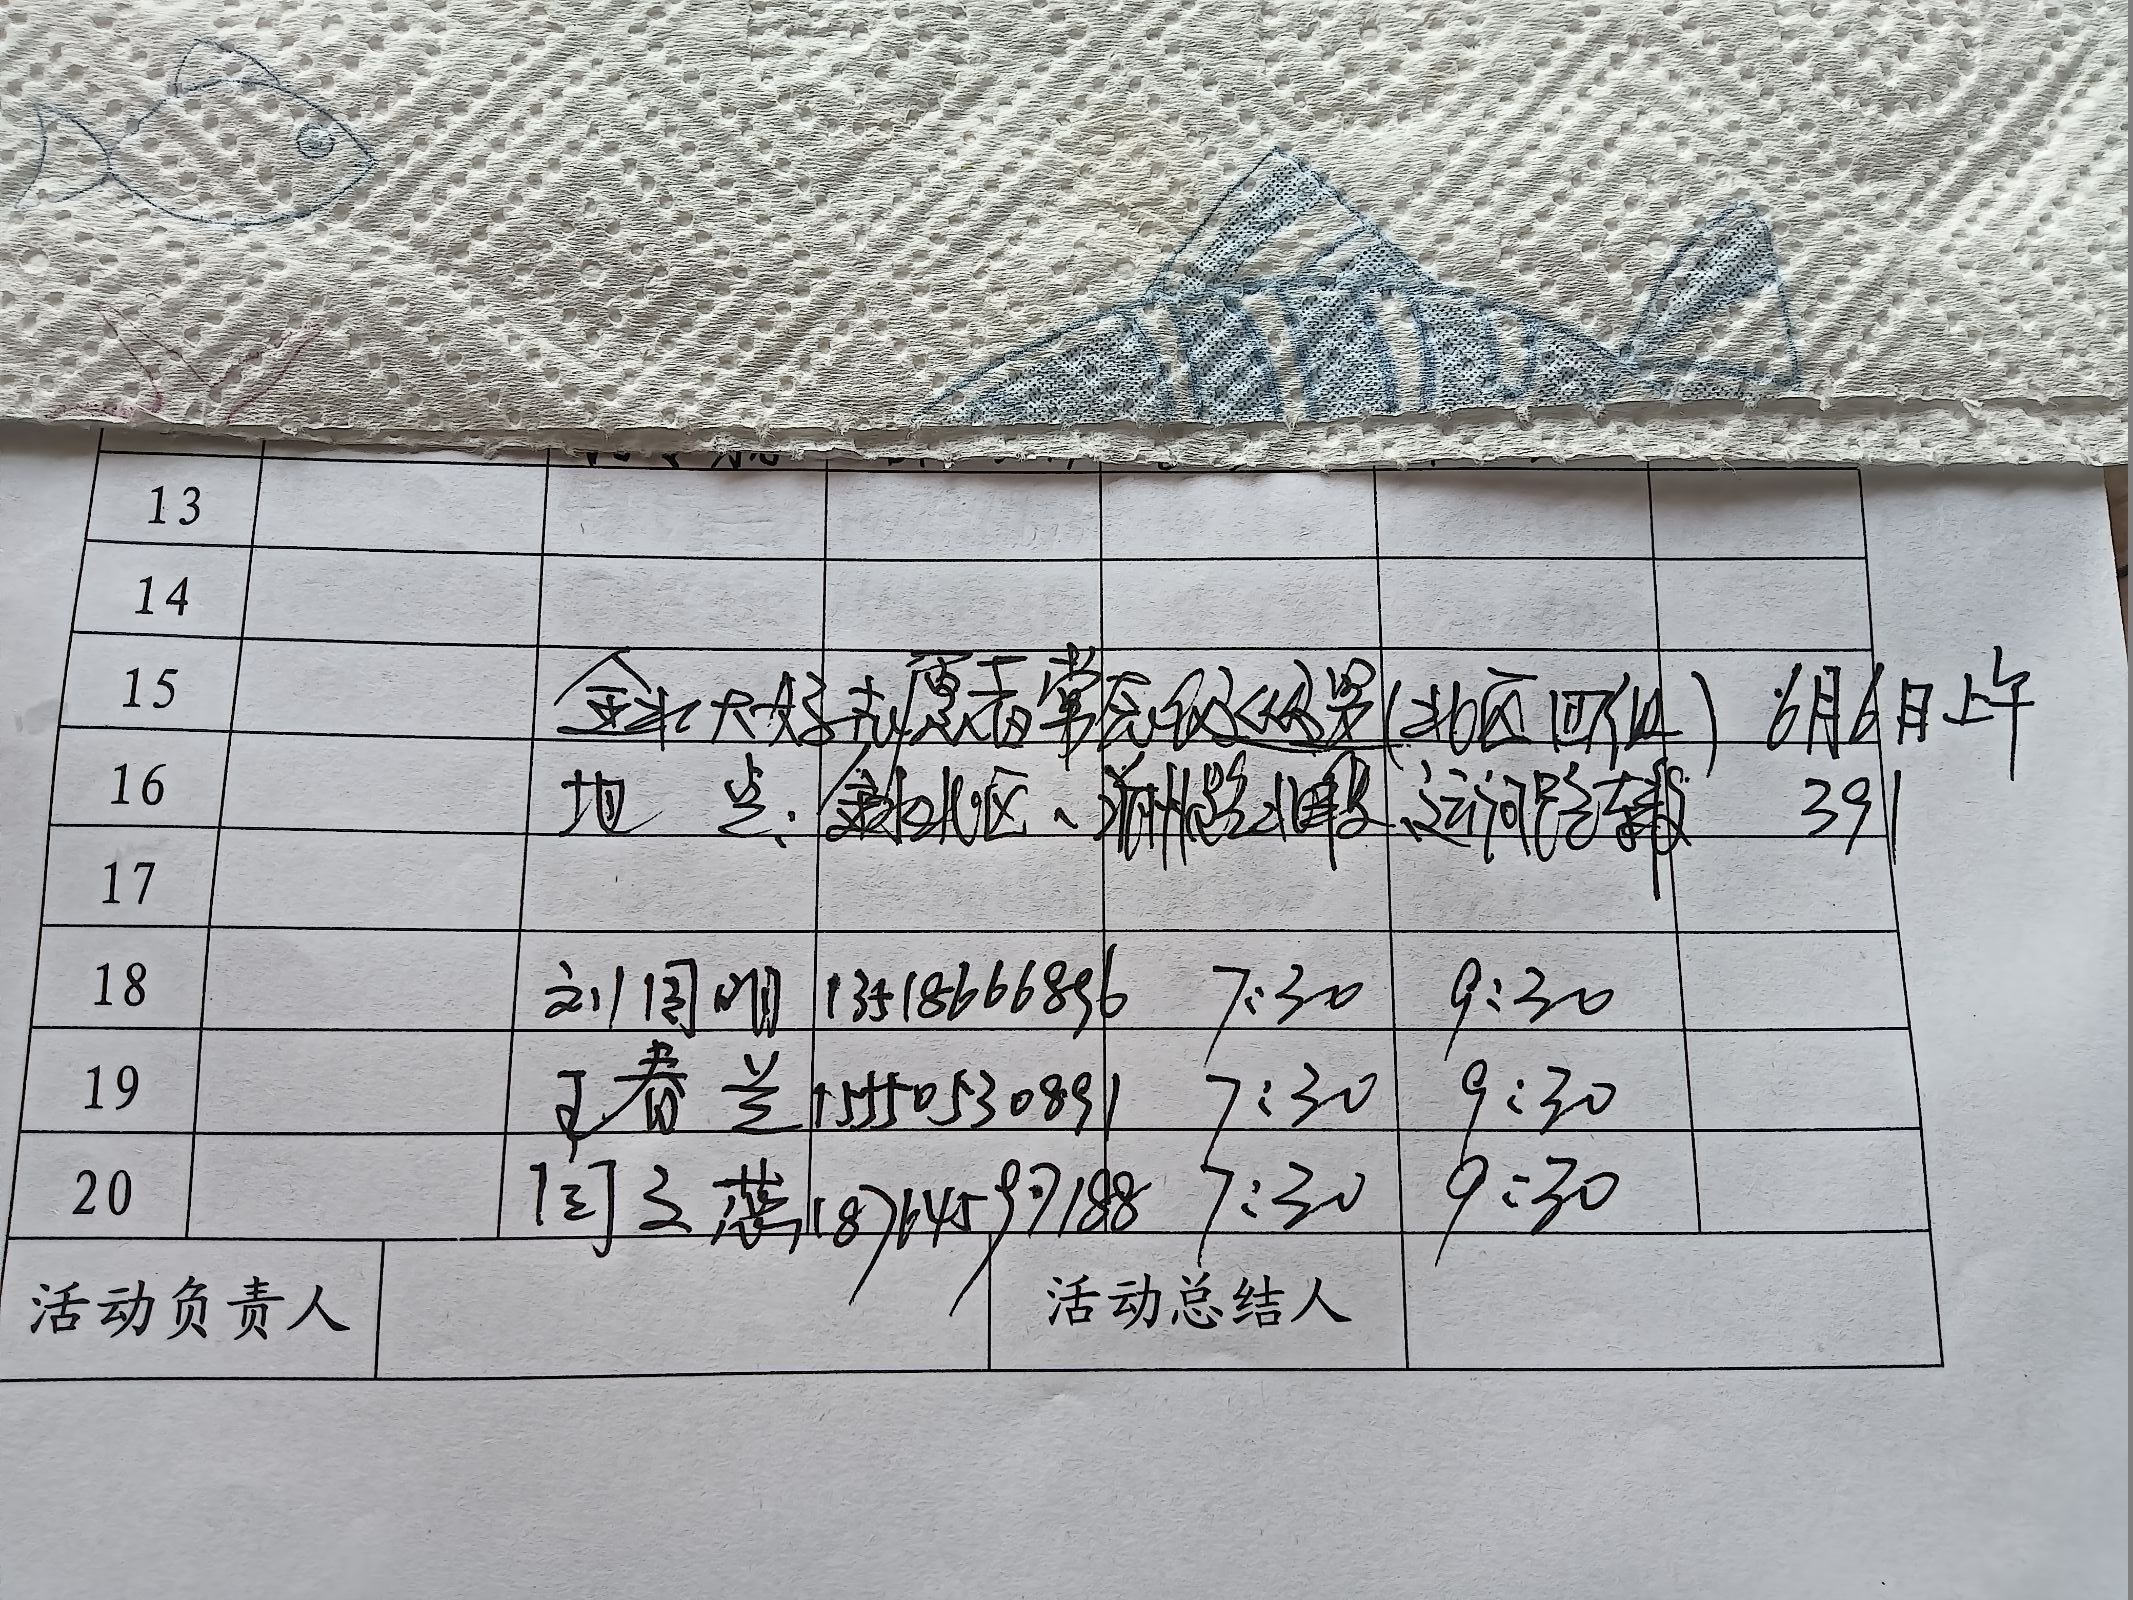 13
14
15 金北大好志愿者常 (北区四位) 6月6日上午
16 地点: 北区、 路北段、运河路 391
17
18 刘同明 13518666896 7:30 9:30
19 王春兰 15550530891 7:30 9:30
20 闫文 18764597188 7:30 9:30
活动负责人 活动总结人